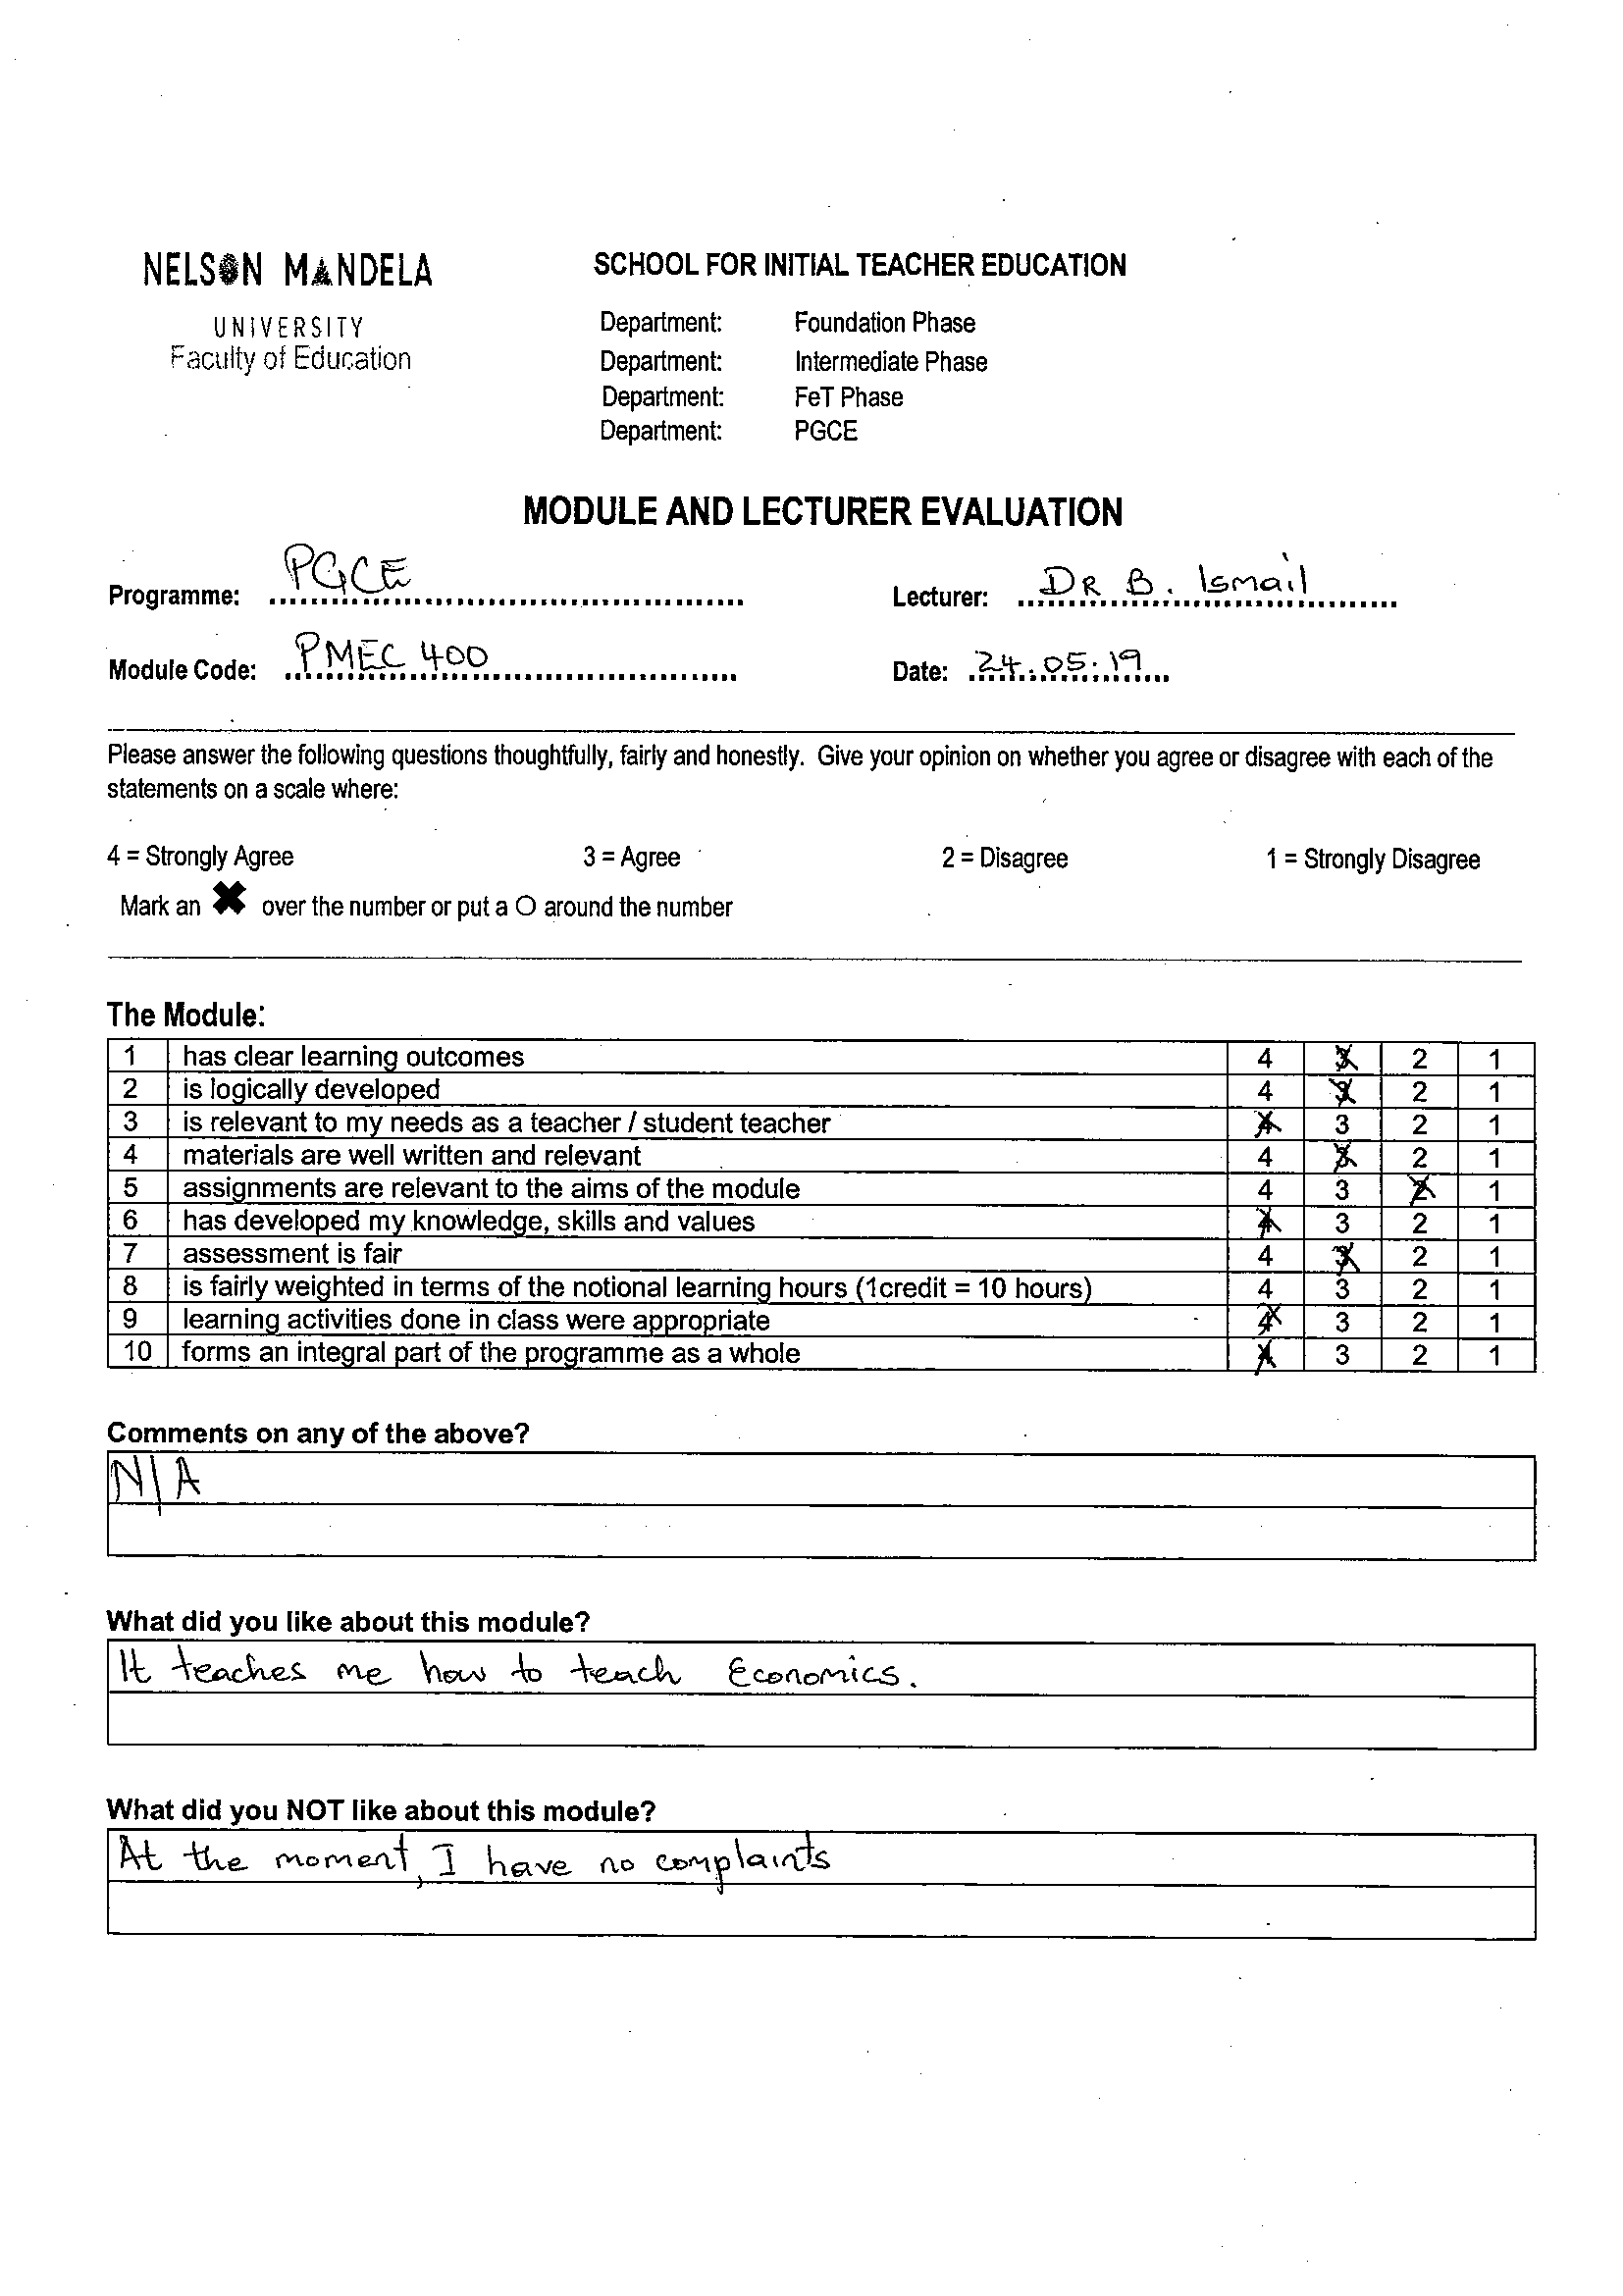 NELSON MANDELA
UNIVERSITY
Faculty of Education
SCHOOL FOR INITIAL TEACHER EDUCATION
Department: Foundation Phase
Department: Intermediate Phase
Department: FeT Phase
Department: PGCE
MODULE AND LECTURER EVALUATION
Programme: PGCE Lecturer: DR B. Ismail
Module Code: PMEC 400 Date: 24.05.19
Please answer the following questions thoughtfully, fairly and honestly. Give your opinion on whether you agree or disagree with each of the
statements on a scale where:
4 = Strongly Agree 3 = Agree 2 = Disagree 1 = Strongly Disagree
Mark an ✖ over the number or put a O around the number
The Module:
1 has clear learning outcomes 4 3 2 1
2 is logically developed 4 3 2 1
3 is relevant to my needs as a teacher / student teacher 4 3 2 1
4 materials are well written and relevant 4 3 2 1
5 assignments are relevant to the aims of the module 4 3 2 1
6 has developed my knowledge, skills and values 4 3 2 1
7 assessment is fair 4 3 2 1
8 is fairly weighted in terms of the notional learning hours (1credit = 10 hours) 4 3 2 1
9 learning activities done in class were appropriate 4 3 2 1
10 forms an integral part of the programme as a whole 4 3 2 1
Comments on any of the above?
N/A
What did you like about this module?
It teaches me how to teach Economics.
What did you NOT like about this module?
At the moment, I have no complaints